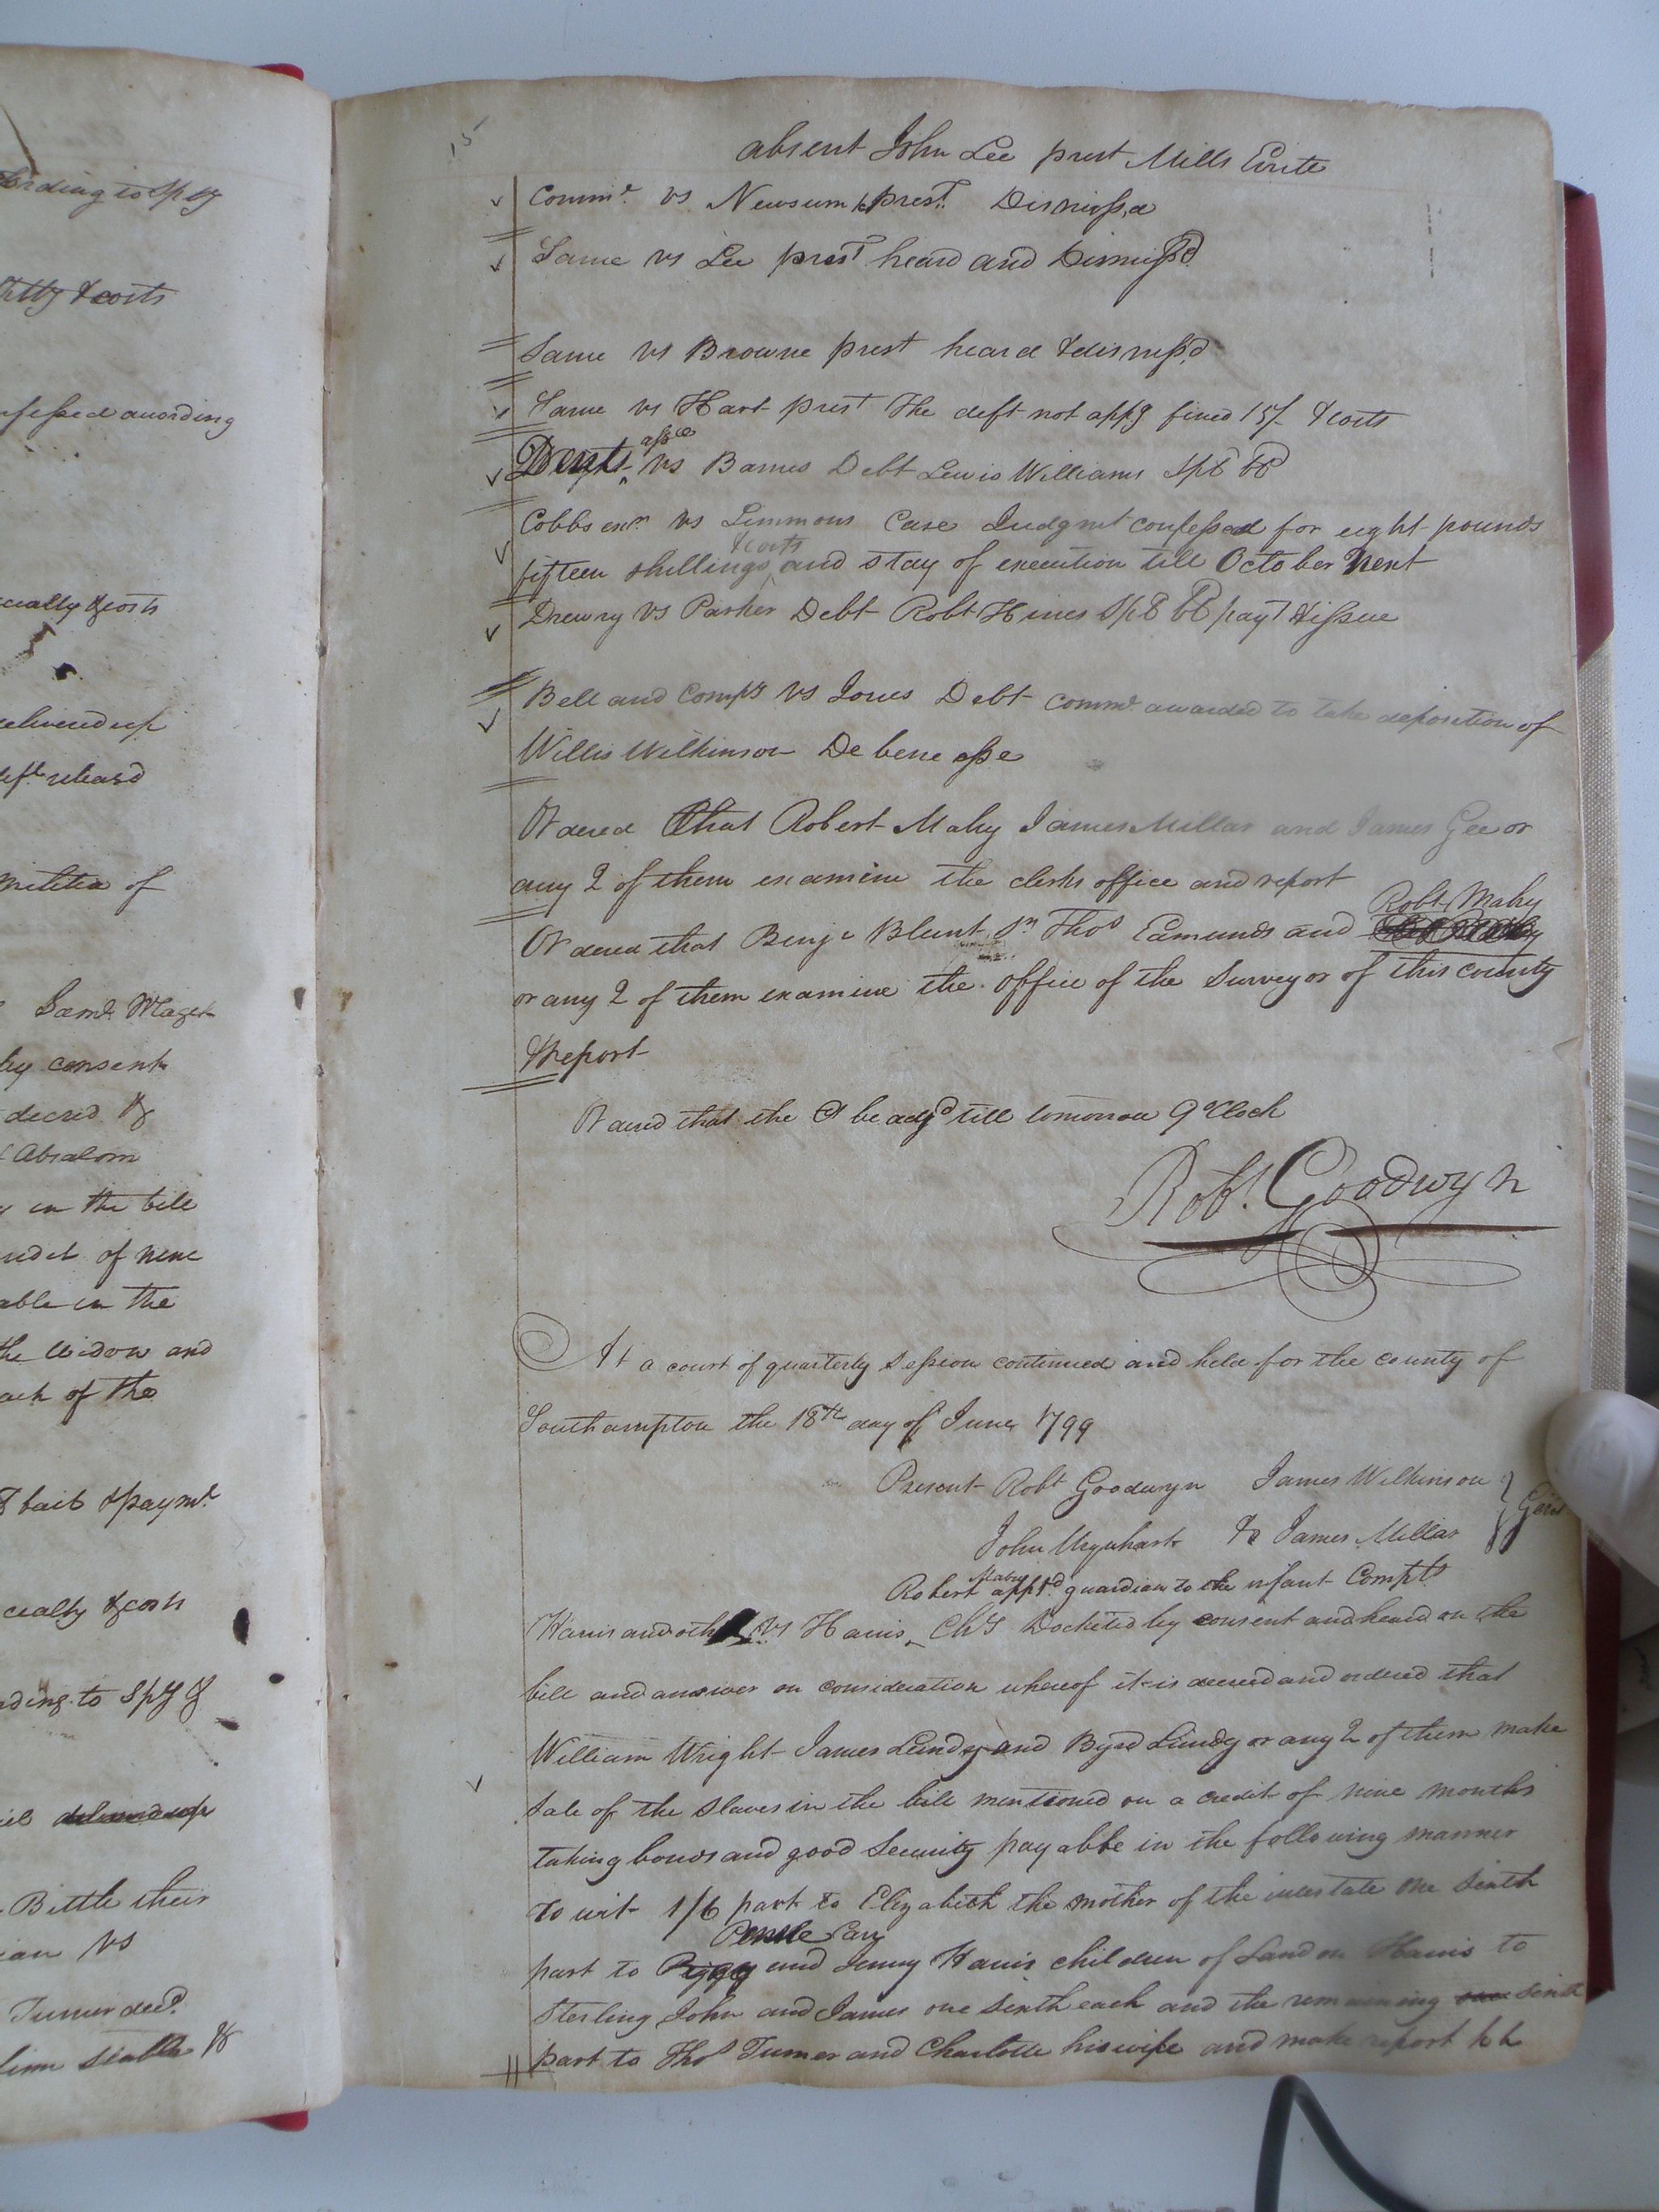 ording to Spty
& costs
confessed according
cialty & costs
delivered up
deft releasd
militia of
Saml. Maget
by consent
decred. &
Absalom
in the bill
credit of nine
able in the
the Widow and
each of the
bail & paymt.
cialty & costs
ading to Spty &
Bittle their
ian vs
Turner decd.
15
absent John Lee prest Mills Evite
Commo. vs Newsum prest. Dismissd
Same vs Lee prest heard and Dismissd
Same vs Browne prest heard & dismissd
Same vs Hart prest The deft not appg fined 15/- & costs
asse
vs Barnes Debt Lewis Williams Spl bl
Cobbs exr. vs Simmons Case Judgmt confessed for eight pounds
& costs
fifteen shillings and stay of execution till October Next
Drewry vs Parker Debt Robt Hines Spl bl payt & issue
Bell and Compy vs Jones Debt Commn. awarded to take deposition of
Willis Wilkinson De bene esse
Ordered that Robert Mabry James Millar and James Gee or
any 2 of them examine the clerks office and report
Robt Mabry
Ordered that Benja Blunt Sr Thos Edmunds and
or any 2 of them examine the office of the Surveyor of this county
& report
Ordered that the Ct be adjd till tomorrow 9 oClock
Robt. Goodwyn
At a court of quarterly Session continued and held for the county of
Southampton the 18th day of June 1799
Present Robt Goodwyn James Wilkinson } Gent
John Urquhart & James Millar
Mabry
Robert apptd guardian to the infant Complts
Harris and oth vs Harris Chy Docketed by consent and heard on the
bill and answer on consideration whereof it is decreed and ordered that
William Wright James Lundy and Byrd Lundy or any 2 of them make
Sale of the Slaves in the bill mentioned on a credit of nine months
taking bonds and good Security payable in the following manner
to wit 1/6 part to Elizabeth the mother of the intestate one Sixth
part to and Jenny Harris children of Landon Harris to
Sterling John and James one sixth each and the remaining one sixth
part to Thos Turner and Charlotte his wife and make report &c